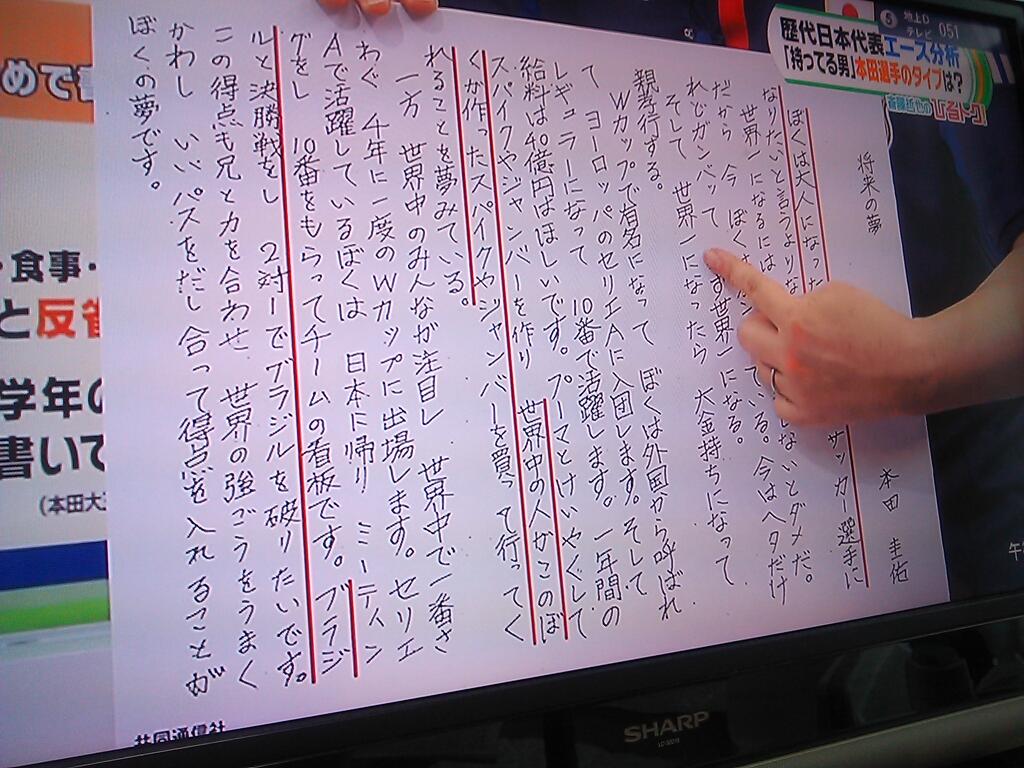 地上D
テレビ
051
5
歴代日本代表エース分析
「持ってる男」本田選手のタイプは?
将来の夢
本田 圭佑
ぼくは大人になった サッカー選手に
なりたいと言うよりな しないとダメだ。
世界一になるには
だから 今 ぼくは ている。今はヘタだけ
れどガンバって 世界一になる。
そして 世界一になったら 大金持ちになって
親孝行する。
Wカップで有名になって ぼくは外国から呼ばれ
て ヨーロッパのセリエAに入団します。そして
レギュラーになって 10番で活躍します。一年間の
給料は40億円はほしいです。プーマとけいやくして
スパイクやジャンバーを作り 世界中の人がこのぼ
くが作ったスパイクやジャンバーを買って行ってく
れることを夢みている。
一方 世界中のみんなが注目し 世界中で一番さ
わぐ 4年に一度のWカップに出場します。セリエ
Aで活躍しているぼくは 日本に帰り ミーティン
グをし 10番をもらってチームの看板です。ブラジ
ルと決勝戦をし 2対1でブラジルを破りたいです。
この得点も兄と力を合わせ 世界の強ごうをうまく
かわし いいパスをだし合って得点を入れることが
ぼくの夢です。
めで書
・食事・
と反省
学年の
書いて
(本田大
共同通信社
SHARP